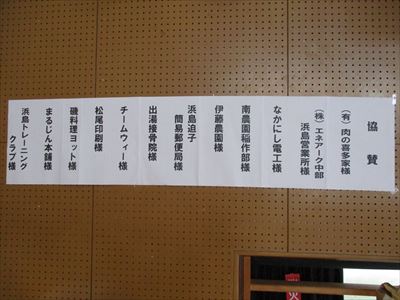 協賛
(有)肉の喜多家様
(株)エネアーク中部
浜島営業所様
なかにし電工様
南農園稲作部様
伊藤農園様
浜島迫子
簡易郵便局様
出湯接骨院様
チームウィー様
松尾印刷様
磯料理ヨット様
まるじん本舗様
浜島トレーニング
クラブ様
火